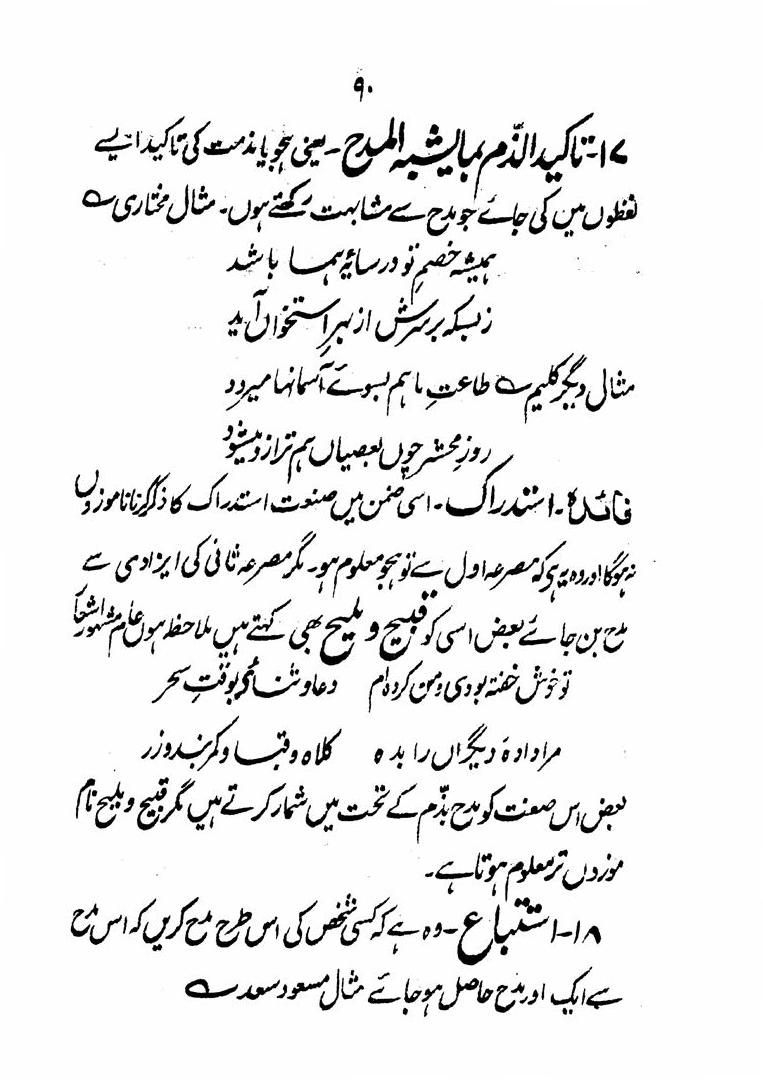 ۹۰
۱۷۔ تاکید الذّم بمایشبہ المدح۔ یعنی ہجو یا مذمت کی تاکید ایسے
لفظوں میں کی جائے جو مدح سے مشابہت رکھتے ہوں۔ مثال مختاری ؎
ہمیشہ خصمِ تو در سایۂ ہما باشد
ز بسکہ بر سرش از بہرِ استخواں آید
مثال دیگر کلیم ؎ طاعتِ ما ہم بسوئے آسمانہا میرود
روزِ محشر چوں بعصیاں ہم ترازو میشود
فائدہ۔ استدراک۔ اسی ضمن میں صنعت استدراک کا ذکر کرنا ناموزوں
نہ ہوگا اور وہ یہ ہی کہ مصرعہ اول سے تو ہجو معلوم ہو۔ مگر مصرعہ ثانی کی ایزادی سے
مدح بن جائے بعض اسی کو قبیح و ملیح بھی کہتے ہیں ملاحظہ ہوں عام مشہور اشعار
تو خوش خفتہ بودی و من کردہ ام دعا و ثنا بوقتِ سحر
مرا دادۂ دیگراں را بدہ کلاہ و قبا و کمربند و زر
بعض اس صنعت کو مدح بذّم کے تحت میں شمار کرتے ہیں مگر قبیح و ملیح نام
موزوں تر معلوم ہوتا ہے۔
۱۸۔ استتباع۔ وہ ہے کہ کسی شخص کی اس طرح مدح کریں کہ اس مدح
سے ایک اور مدح حاصل ہو جائے مثال مسعود سعد ؎